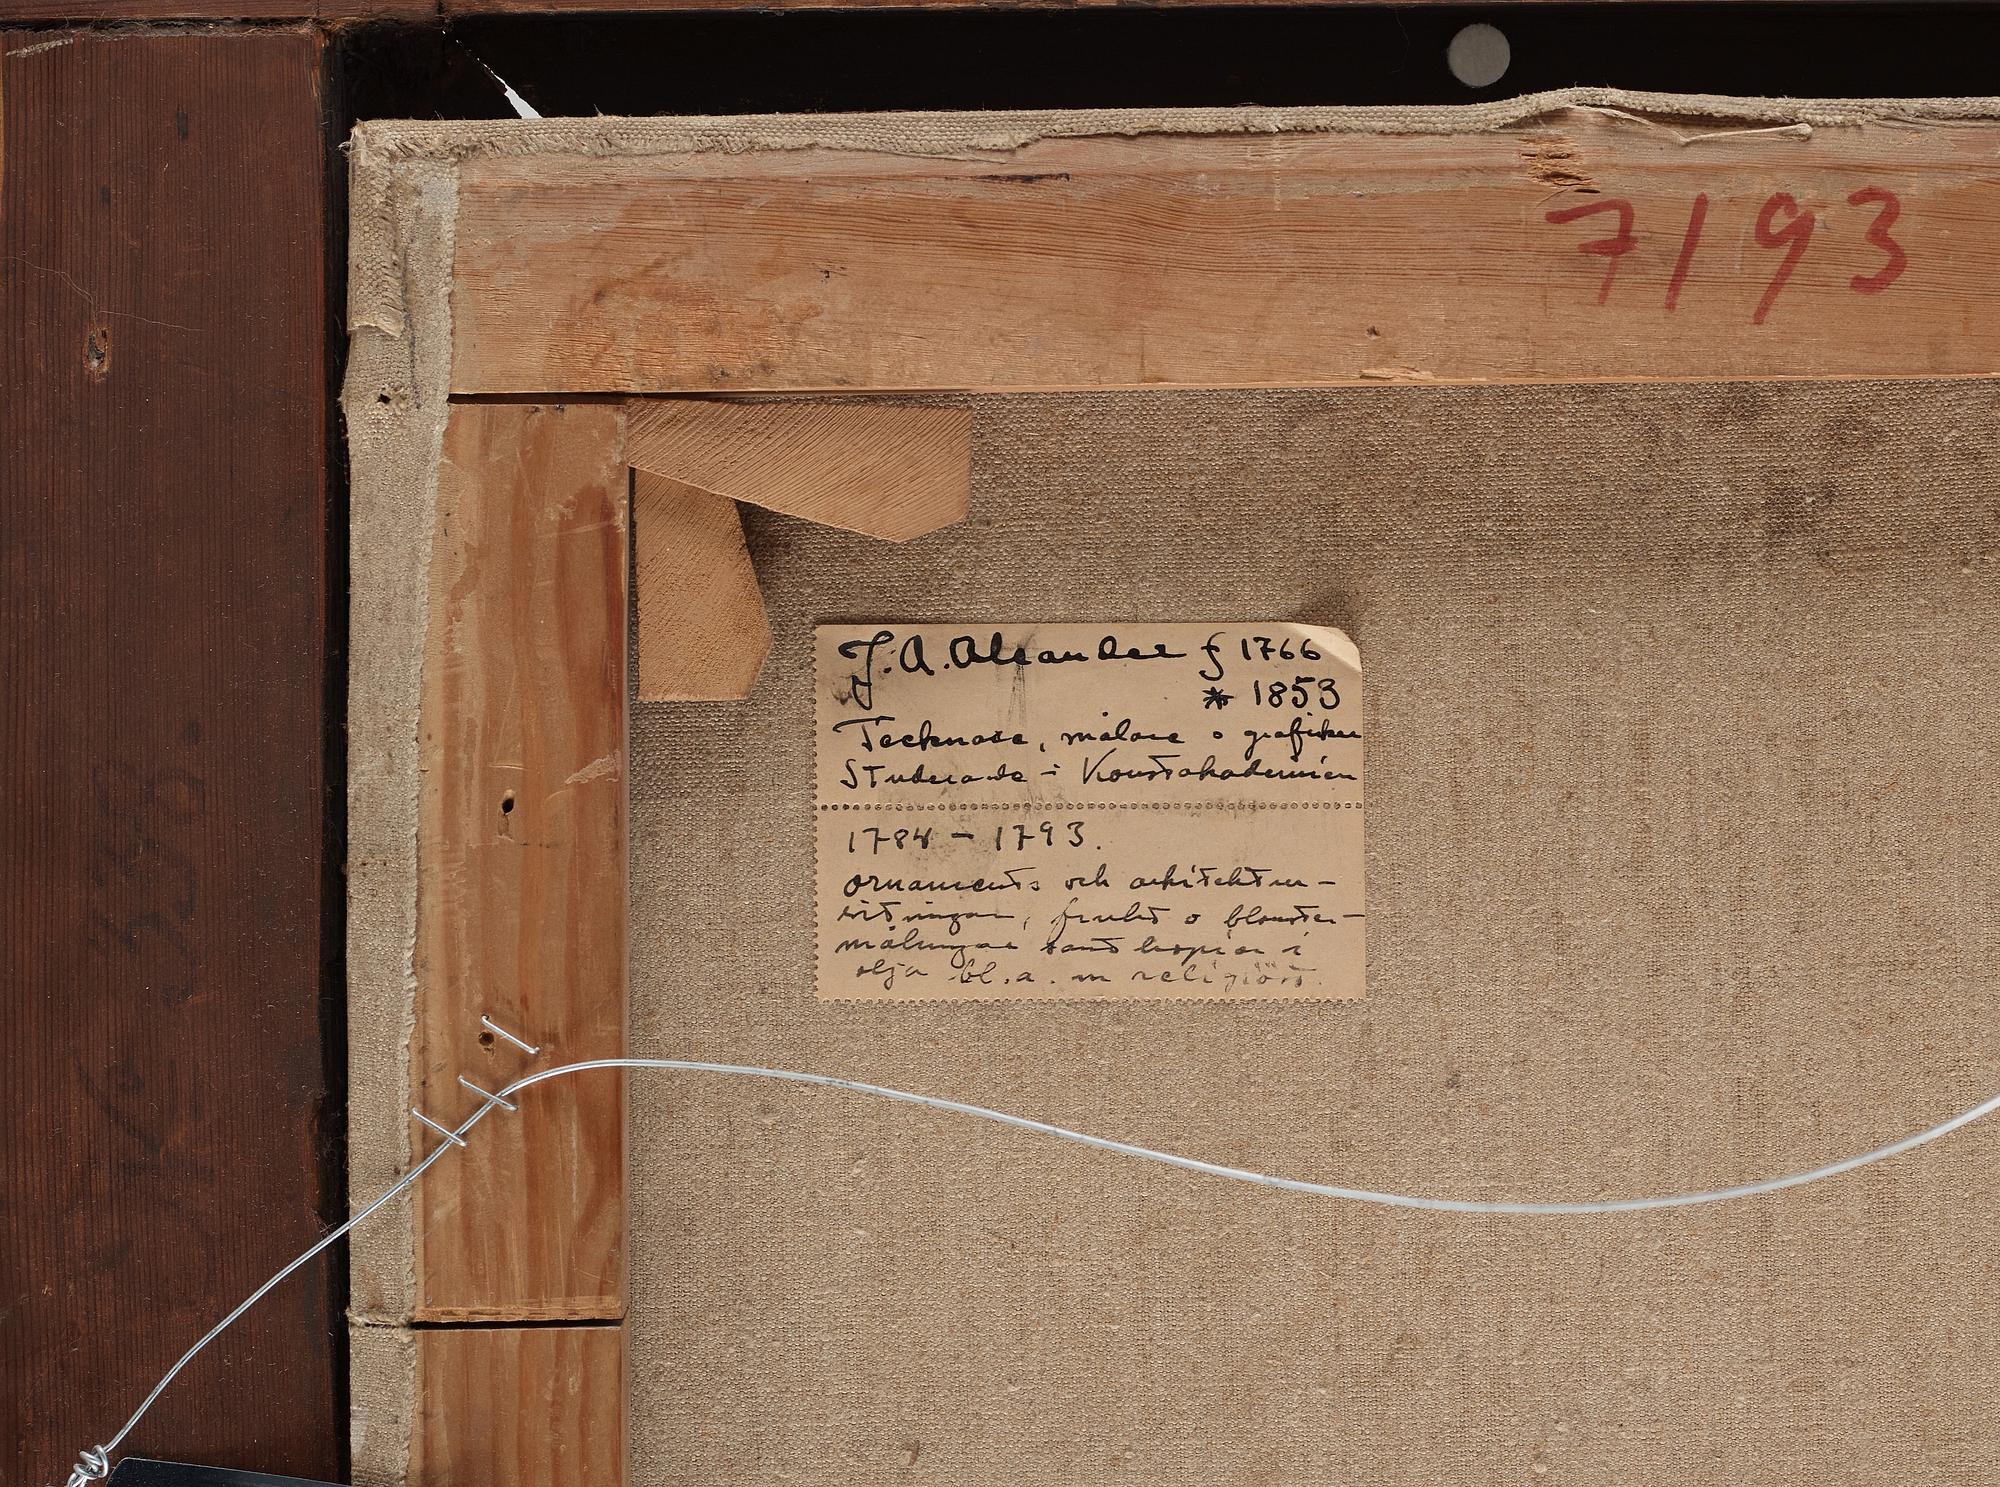 7193
J. A. Aleander f 1766
* 1853
Tecknare, målare o grafiker
Studerade i Konstakademien
1784 - 1793.
ornaments och arkitektur-
ritningar, frukt o blomster-
målningar samt kopior i
olja bl.a. m religiöst.